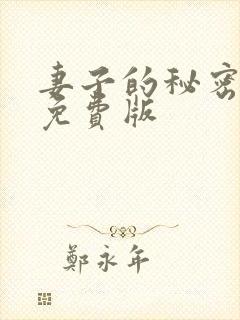 妻子的秘密
免費版
鄭永年